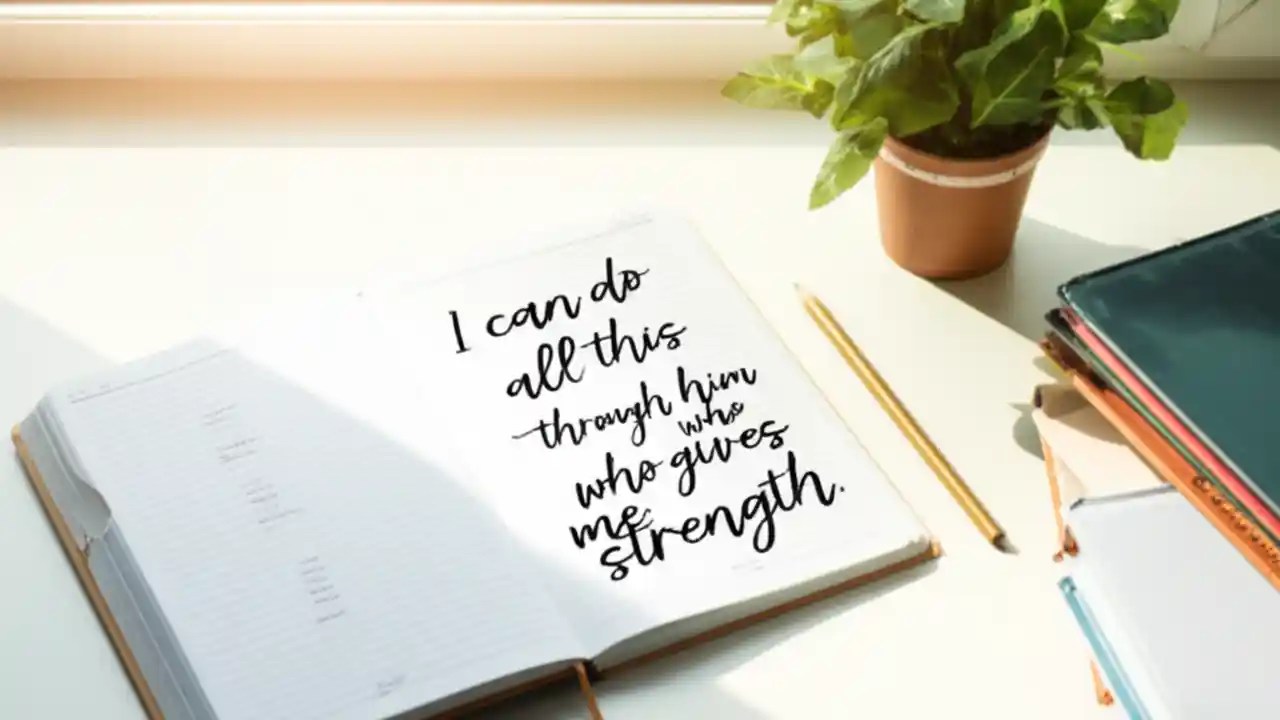 I can do
all this
through him
who
who gives
me
strength.